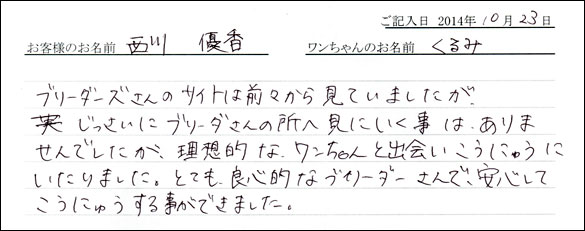 ご記入日 2014年10月23日
お客様のお名前 西川 優香 ワンちゃんのお名前 くるみ
ブリーダーズさんのサイトは前々から見ていましたが、
じっさいにブリーダさんの所へ見にいく事は、ありま
せんでしたが、理想的な、ワンちゃんと出会いこうにゅうに
いたりました。とても、良心的なブリーダーさんで、安心して
こうにゅうする事ができました。